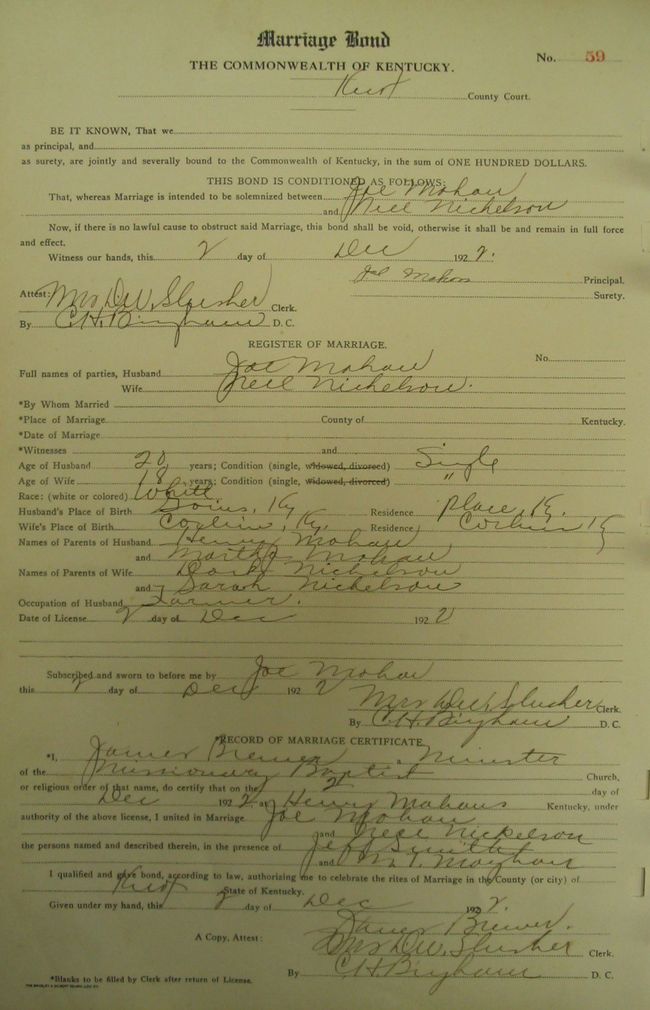 Marriage Bond
No. 59
THE COMMONWEALTH OF KENTUCKY.
Knox County Court.
BE IT KNOWN, That we
as principal, and
as surety, are jointly and severally bound to the Commonwealth of Kentucky, in the sum of ONE HUNDRED DOLLARS.
THIS BOND IS CONDITIONED AS FOLLOWS:
That, whereas Marriage is intended to be solemnized between Joe Mohan
and Nell Nichelson
Now, if there is no lawful cause to obstruct said Marriage, this bond shall be void, otherwise it shall be and remain in full force
and effect.
Witness our hands, this 2 day of Dec 1922.
Joe Mahan Principal.
Surety.
Attest: Mrs D.W. Slusher Clerk.
By C.H. Bingham D. C.
REGISTER OF MARRIAGE.
No.
Full names of parties, Husband Joe Mohan
Wife Nell Nichelson.
*By Whom Married
*Place of Marriage County of Kentucky.
*Date of Marriage
*Witnesses and
Age of Husband 20 years; Condition (single, widowed, divorced) Single
Age of Wife 18 years; Condition (single, widowed, divorced) "
Race: (white or colored) White
Husband's Place of Birth Goins, Ky Residence Place, Ky.
Wife's Place of Birth Corbin, Ky. Residence Corbin Ky
Names of Parents of Husband Henry Mohan
and Martha Mohan
Names of Parents of Wife Nichelson
and Sarah Nichelson
Occupation of Husband Farmer.
Date of License 2 day of Dec 1922
Subscribed and sworn to before me by Joe Mohan
this 2 day of Dec 1922
Mrs D.W. Slusher Clerk.
By C.H. Bingham D. C.
*RECORD OF MARRIAGE CERTIFICATE
*I, James Brewer, Minister
of the Missionary Baptist Church,
or religious order of that name, do certify that on the 2 day of
Dec 1922, at Henry Mahans Kentucky, under
authority of the above license, I united in Marriage Joe Mohan
and Nece Nickelson
the persons named and described therein, in the presence of Jeff Smith
and
I qualified and gave bond, according to law, authorizing me to celebrate the rites of Marriage in the County (or city) of
Knox State of Kentucky.
Given under my hand, this 2 day of Dec 1922.
James Brewer.
A Copy, Attest: Mrs D.W. Slusher Clerk.
By C.H. Bingham D. C.
*Blanks to be filled by Clerk after return of License.